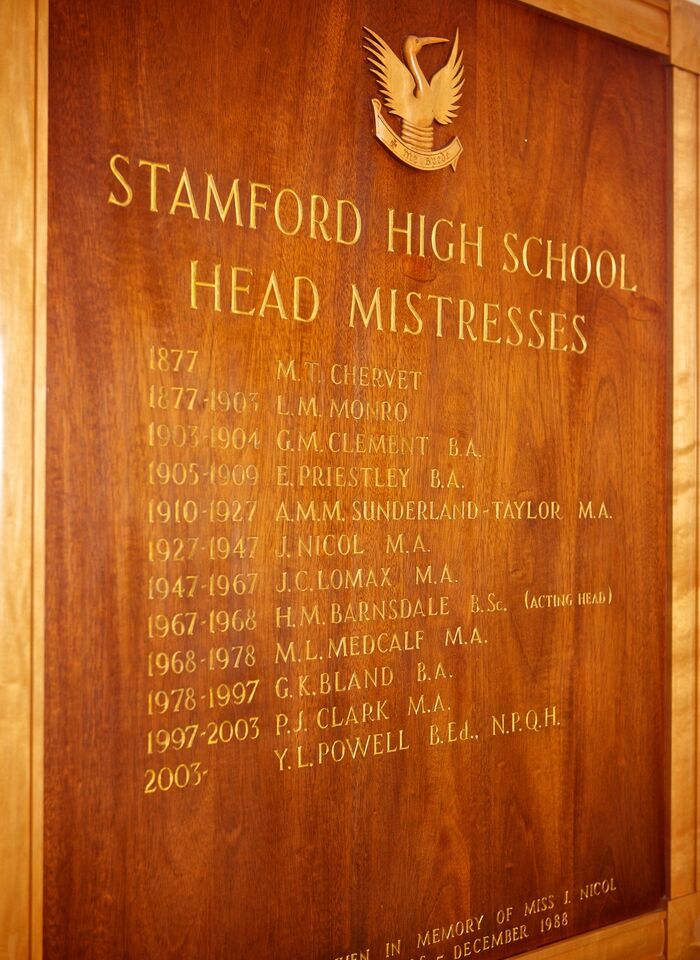 me spede
STAMFORD HIGH SCHOOL
HEAD MISTRESSES
1877 M.T. CHERVET
1877-1903 L.M. MONRO
1903-1904 G.M. CLEMENT B.A.
1905-1909 E. PRIESTLEY B.A.
1910-1927 A.M.M. SUNDERLAND-TAYLOR M.A.
1927-1947 J. NICOL M.A.
1947-1967 J.C. LOMAX M.A.
1967-1968 H.M. BARNSDALE B.Sc. (ACTING HEAD)
1968-1978 M.L. MEDCALF M.A.
1978-1997 G.K. BLAND B.A.
1997-2003 P.J. CLARK M.A.
2003- Y.L. POWELL B.Ed., N.P.Q.H.
IN MEMORY OF MISS J. NICOL
- DECEMBER 1988